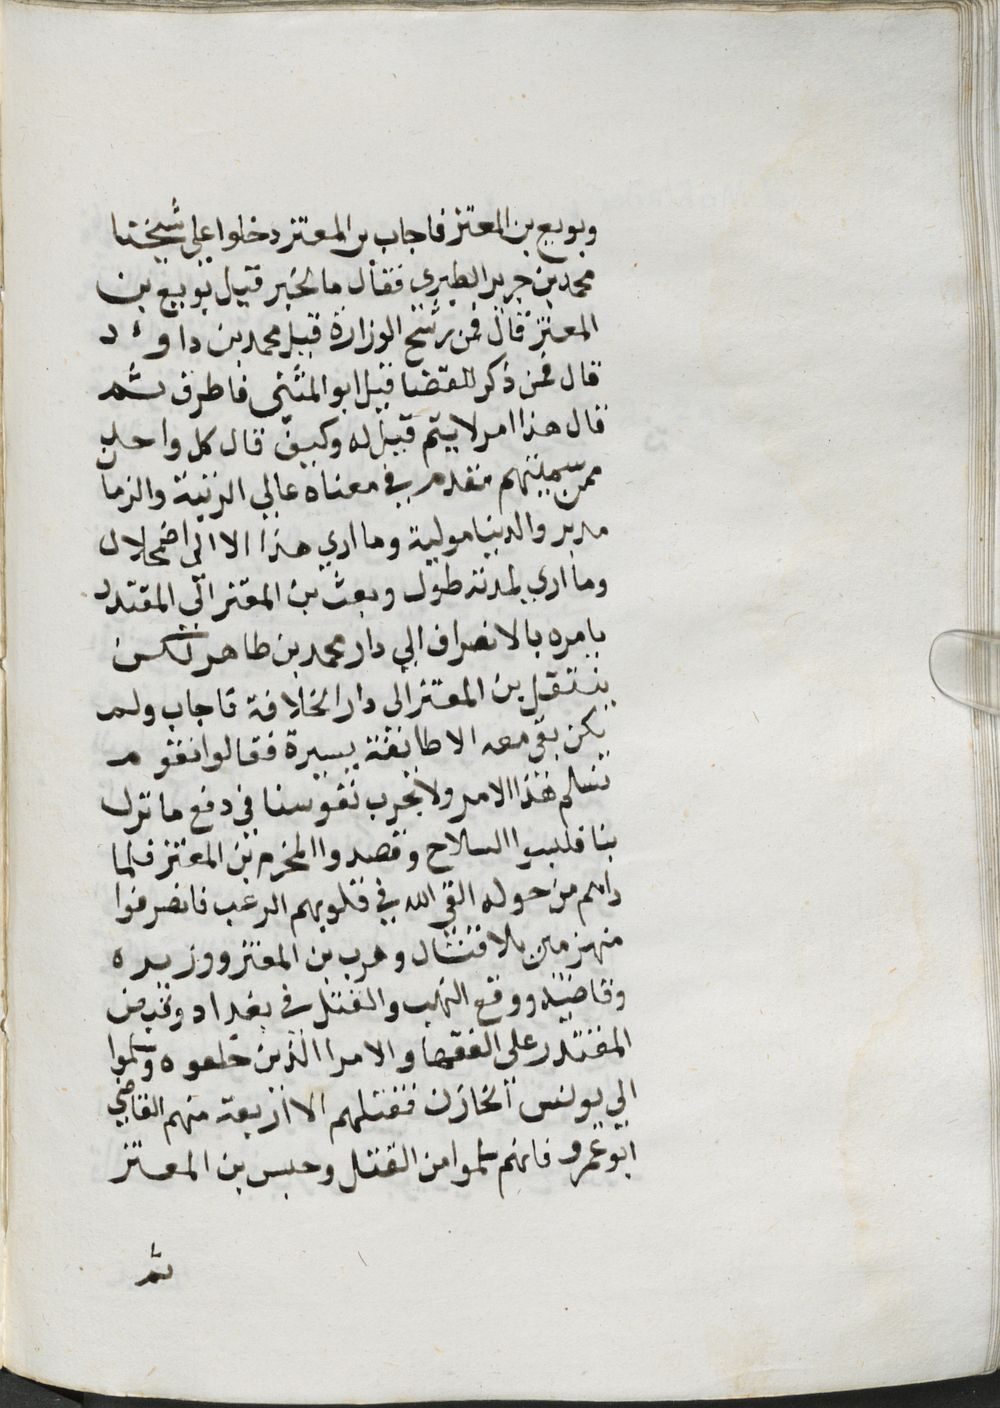 وبويع بن المعتز فاجاب بن المعتز دخلوا على شيخنا
محمد بن جرير الطبري فقال ما الخبر قيل بويع بن
المعتز قال فمن رشح الوزارة قيل محمد بن داود
قال فمن ذكر للقضا قيل ابو المثنى فاطرق ثم
قال هذا امر لا يتم قيل له وكيف قال كل واحد
ممن سميتهم متقدم في معناه عالي الرتبة والزما
مدبر والدنيا مولية وما اري هذا الا الي اضمحلال
وما اري لمدته طول وبعث بن المعتز الي المقتدر
يامره بالانصراف الي دار محمد بن طاهر لكن
ينتقل بن المعتز الى دار الخلافة فاجاب ولم
يكن بقي معه الا طائفة يسيرة فقالوا انقوم
نسلم هذا الامر ولا نجرب نفوسنا في دفع ما نزل
بنا فلبسوا السلاح وقصدوا المخرم بن المعتز فلما
راهم من حوله القي الله في قلوبهم الرعب فانصرفوا
منهزمين بلا قتال وهرب بن المعتز ووزيره
وقاضيه ووقع النهب والقتل في بغداد وقبض
المقتدر على الفقها والامرا الذين خلعوه وسلموا
الي يونس الخازن فقتلهم الا اربعة منهم القاضي
ابو عمرو فانهم سلموا من القتل وحبس بن المعتز
ثم